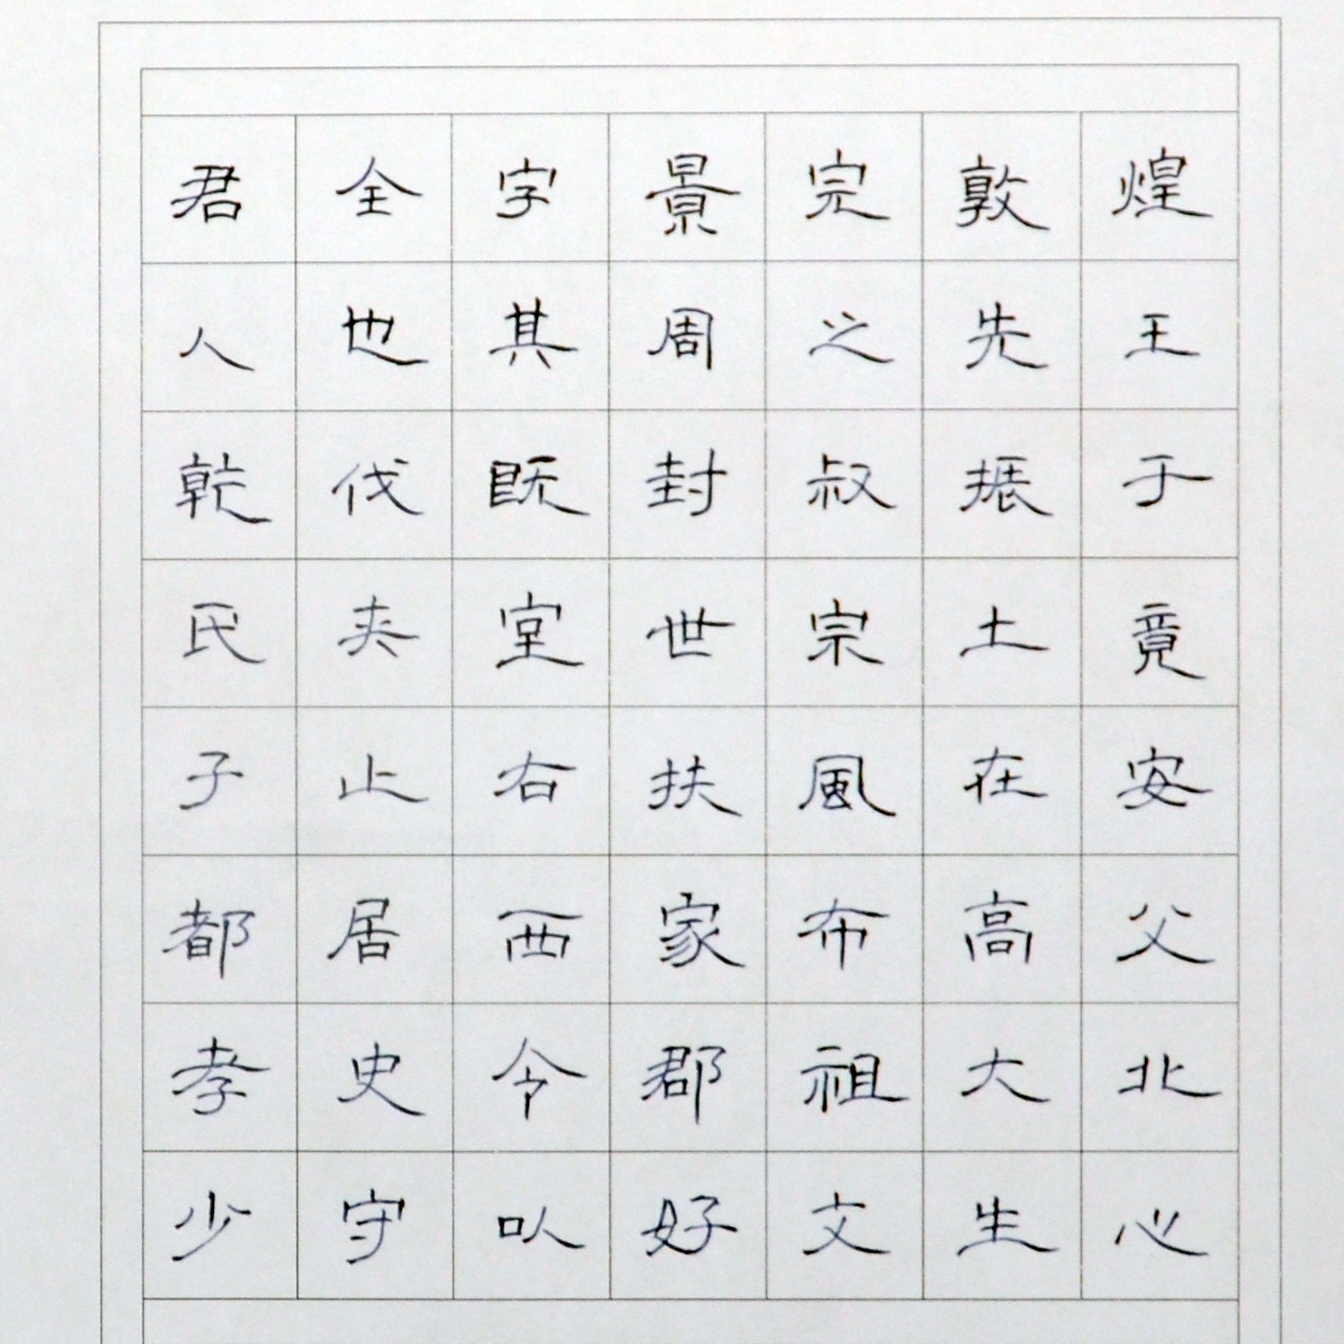 君全字景完敦煌
人也其周之先王
乾伐既封叔振于
氏夾室世宗土竟
子止右扶風在安
都居西家布高父
孝史令郡祖大北
少守以好文生心